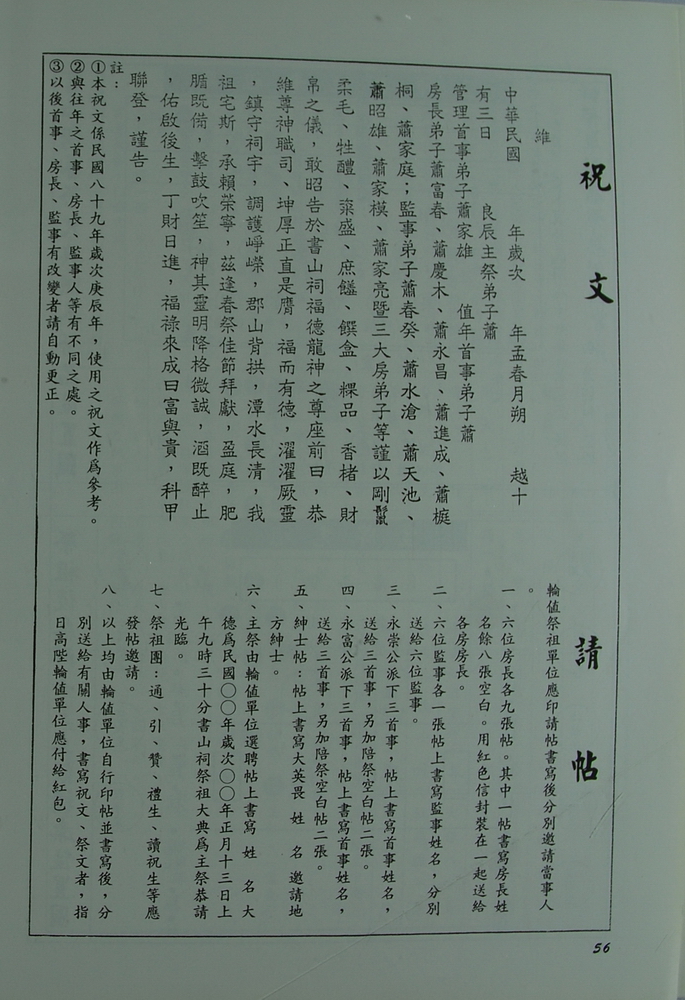 祝文
維
中華民國　年歲次　年孟春月朔　越十
有三日　良辰主祭弟子蕭
管理首事弟子蕭家雄　值年首事弟子蕭
房長弟子蕭富春、蕭慶木、蕭永昌、蕭進成、蕭榳
桐、蕭家庭；監事弟子蕭春癸、蕭水滄、蕭天池、
蕭昭雄、蕭家模、蕭家亮暨三大房弟子等謹以剛鬣
柔毛、牲醴、粢盛、庶饈、饌盒、粿品、香楮、財
帛之儀，敢昭告於書山祠福德龍神之尊座前曰，恭
維尊神職司、坤厚正直是膺，福而有德，濯濯厥靈
，鎮守祠宇，調護崢嶸，郡山背拱，潭水長清，我
祖宅斯，承賴榮寧，茲逢春祭佳節拜獻，盈庭，肥
腯既備，擊鼓吹笙，神其靈明降格微誠，酒既醉止
，佑啟後生，丁財日進，福祿來成曰富與貴，科甲
聯登，謹告。
註：
①本祝文係民國八十九年歲次庚辰年，使用之祝文作為參考。
②與往年之首事、房長、監事人等有不同之處。
③以後首事、房長、監事有改變者請自動更正。
請帖
輪值祭祖單位應印請帖書寫後分別邀請當事人
。
一、六位房長各九張帖。其中一帖書寫房長姓
名餘八張空白。用紅色信封裝在一起送給
各房房長。
二、六位監事各一張帖上書寫監事姓名，分別
送給六位監事。
三、永崇公派下三首事，帖上書寫首事姓名，
送給三首事，另加陪祭空白帖二張。
四、永富公派下三首事，帖上書寫首事姓名，
送給三首事，另加陪祭空白帖二張。
五、紳士帖：帖上書寫大英畏　姓　名邀請地
方紳士。
六、主祭由輪值單位選聘帖上書寫　姓　名大
德為民國○○年歲次○○年正月十三日上
午九時三十分書山祠祭祖大典為主祭恭請
光臨。
七、祭祖團：通、引、贊、禮生、讀祝生等應
發帖邀請。
八、以上均由輪值單位自行印帖並書寫後，分
別送給有關人事，書寫祝文、祭文者，指
日高陞輪值單位應付給紅包。
56